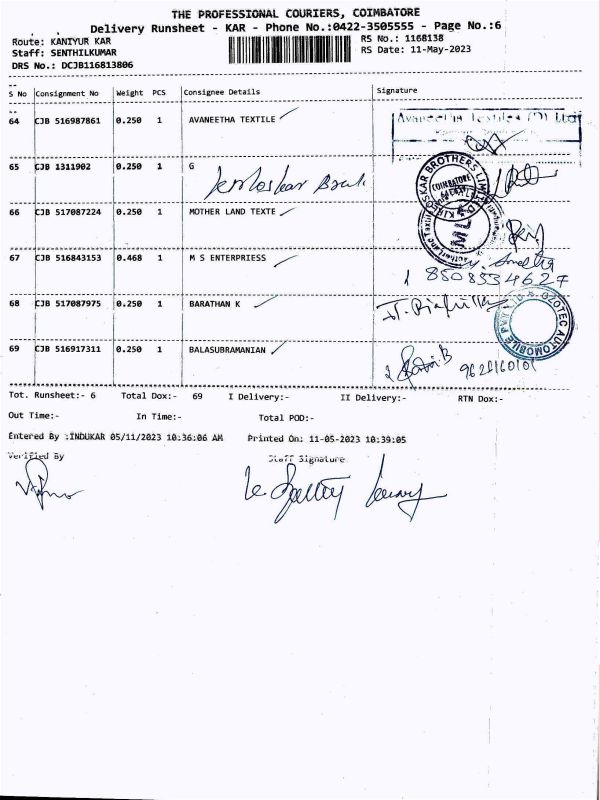 THE PROFESSIONAL COURIERS, COIMBATORE
Delivery Runsheet - KAR - Phone No.:0422-3505555 - Page No.:6
Route: KANIYUR KAR RS No.: 1168138
Staff: SENTHILKUMAR RS Date: 11-May-2023
DRS No.: DCJB116813806
S No Consignment No Weight PCS Consignee Details Signature
64 CJB 516987861 0.250 1 AVANEETHA TEXTILE Avaneetha Textiles (P) Ltd
65 CJB 1311902 0.250 1 G
KIRLOSKAR BROTHERS LIMITED
COIMBATORE
66 CJB 517087224 0.250 1 MOTHER LAND TEXTE
MLT
67 CJB 516843153 0.468 1 M S ENTERPRIESS
8508334627
68 CJB 517087975 0.250 1 BARATHAN K
OZOTEC AUTOMOBILE
69 CJB 516917311 0.250 1 BALASUBRAMANIAN
Tot. Runsheet:- 6 Total Dox:- 69 I Delivery:- II Delivery:- RTN Dox:-
Out Time:- In Time:- Total POD:-
Entered By :INDUKAR 05/11/2023 10:36:06 AM Printed On: 11-05-2023 10:39:05
Verified By Staff Signature